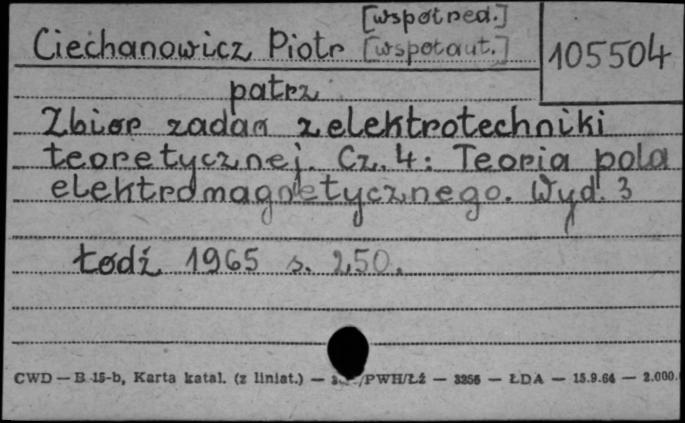 [współred.]
Ciechanowicz Piotr [współaut.]
105504
patrz
Zbiór zadań z elektrotechniki
teoretycznej. Cz. 4: Teoria pola
elektromagnetycznego. Wyd. 3
Łódź 1965 s. 250.
CWD — B 15-b, Karta katal. (z liniat.) — /PWH/Łź — 3256 — ŁDA — 15.9.64 — 2.000.